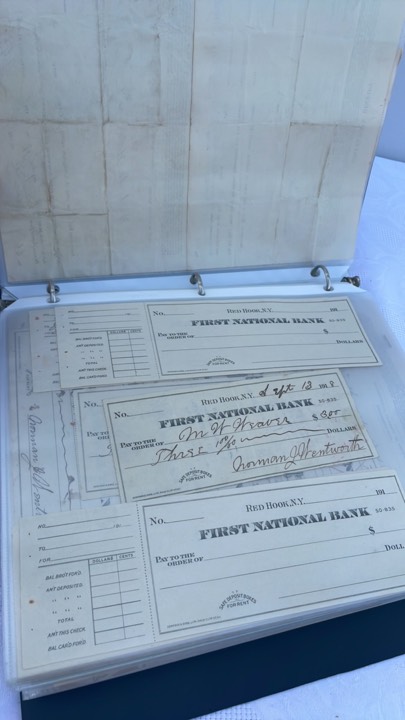 No. RED HOOK, N.Y. 191
TO
FOR
DOLLARS CENTS
FIRST NATIONAL BANK 50-835
BAL. BRO'T FORD.
AMT. DEPOSITED
" " "
" " "
TOTAL
AMT. THIS CHECK
BAL. CAR'D FOR'D.
PAY TO THE
ORDER OF $
DOLLARS
SAFE DEPOSIT BOXES
FOR RENT
No. RED HOOK, N.Y. Sept 13 1918
FIRST NATIONAL BANK 50-835
PAY TO THE
ORDER OF M W Weaver $ 300
Three DOLLARS
SAFE DEPOSIT BOXES
FOR RENT
Norman J. Wentworth
No. 191
TO
FOR
DOLLARS CENTS
BAL. BRO'T FOR'D.
AMT. DEPOSITED
" " "
" " "
TOTAL
AMT. THIS CHECK
BAL. CAR'D FOR'D.
No. RED HOOK, N.Y. 191
FIRST NATIONAL BANK 50-835
PAY TO THE
ORDER OF $
DOLL
SAFE DEPOSIT BOXES
FOR RENT